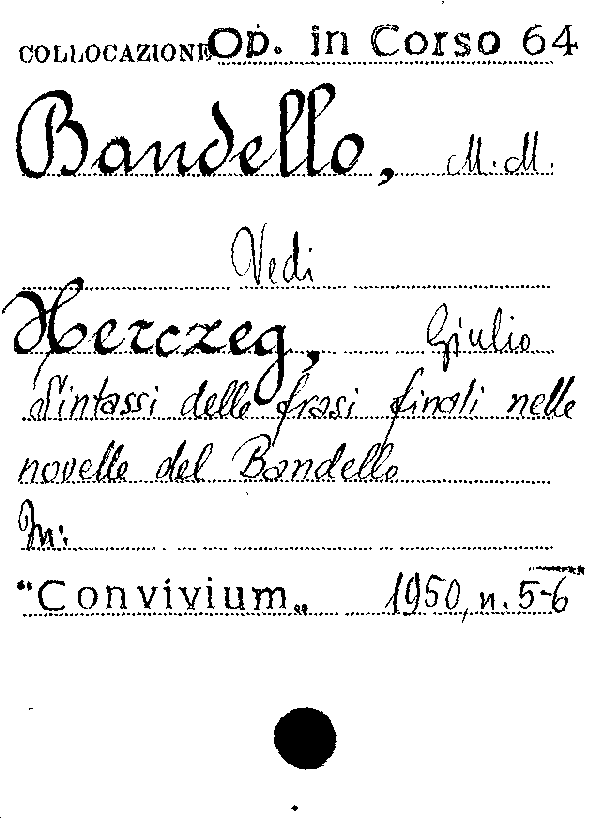 COLLOCAZIONE Op. in Corso 64
Bandello, M. M.
Vedi
Herczeg, Giulio
Sintassi delle frasi finali nelle
novelle del Bandello
In:
"Convivium„ 1950, n. 5-6